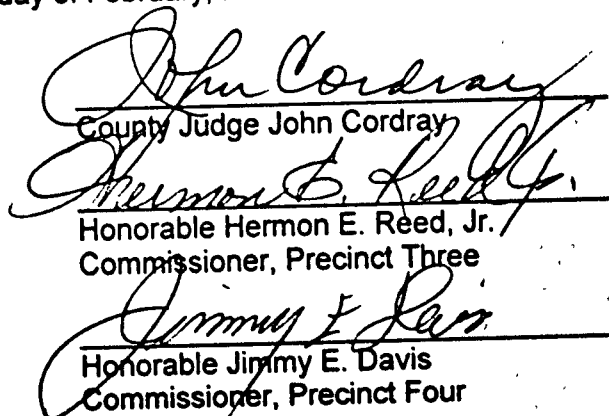 day of February,
John Cordray
County Judge John Cordray
Hermon E. Reed Jr.
Honorable Hermon E. Reed, Jr.
Commissioner, Precinct Three
Jimmy E Davis
Honorable Jimmy E. Davis
Commissioner, Precinct Four